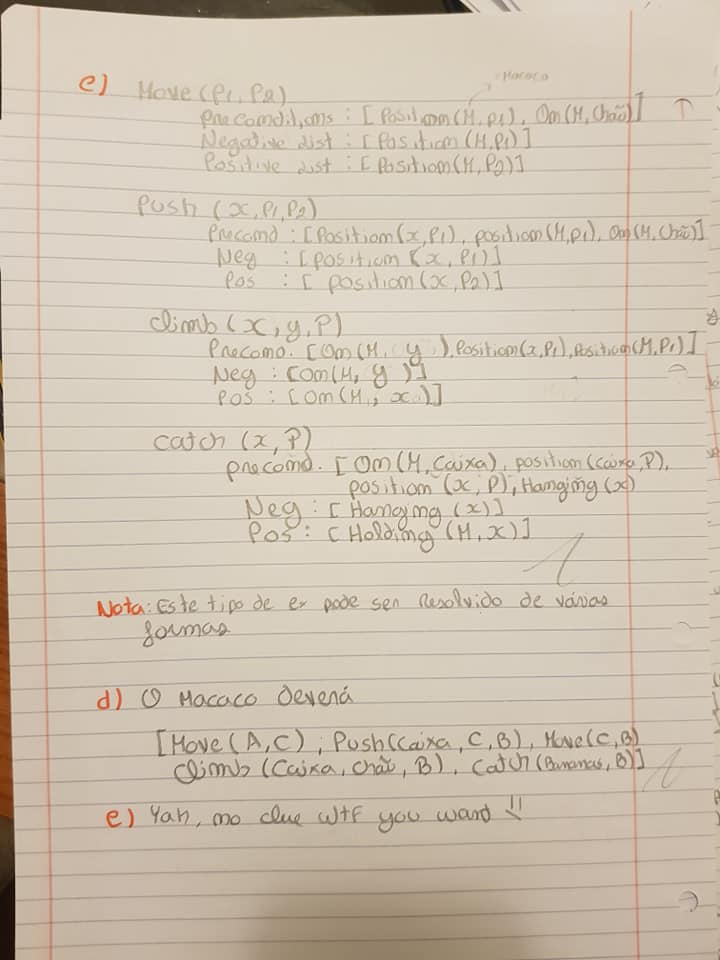 c) Move (P1, P2)
Macaco
Preconditions : [Position(M, p1), On(M, Chão)]
Negative list : [Position (M, P1)]
Positive list : [Position(M, P2)]
Push (x, P1, P2)
Precond : [Position(x, P1), position(M, p1), On(M, Chão)]
Neg : [position (x, P1)]
Pos : [position (x, P2)]
Climb (x, y, P)
Precond. [On(M, y), Position(x, P1), Position(M, P1)]
Neg : [On(M, y)]
Pos : [On(M, x)]
Catch (x, P)
precond. [On(M, Caixa), position (caixa, P),
position (x, P), Hanging (x)
Neg : [Hanging (x)]
Pos : [Holding (M, x)]
Nota: Este tipo de ex pode ser resolvido de várias
formas
d) O Macaco deverá
[Move (A, C), Push(Caixa, C, B), Move(C, B)
Climb (Caixa, chão, B), Catch (Bananas, B)]
e) Yah, no clue wtf you want !!